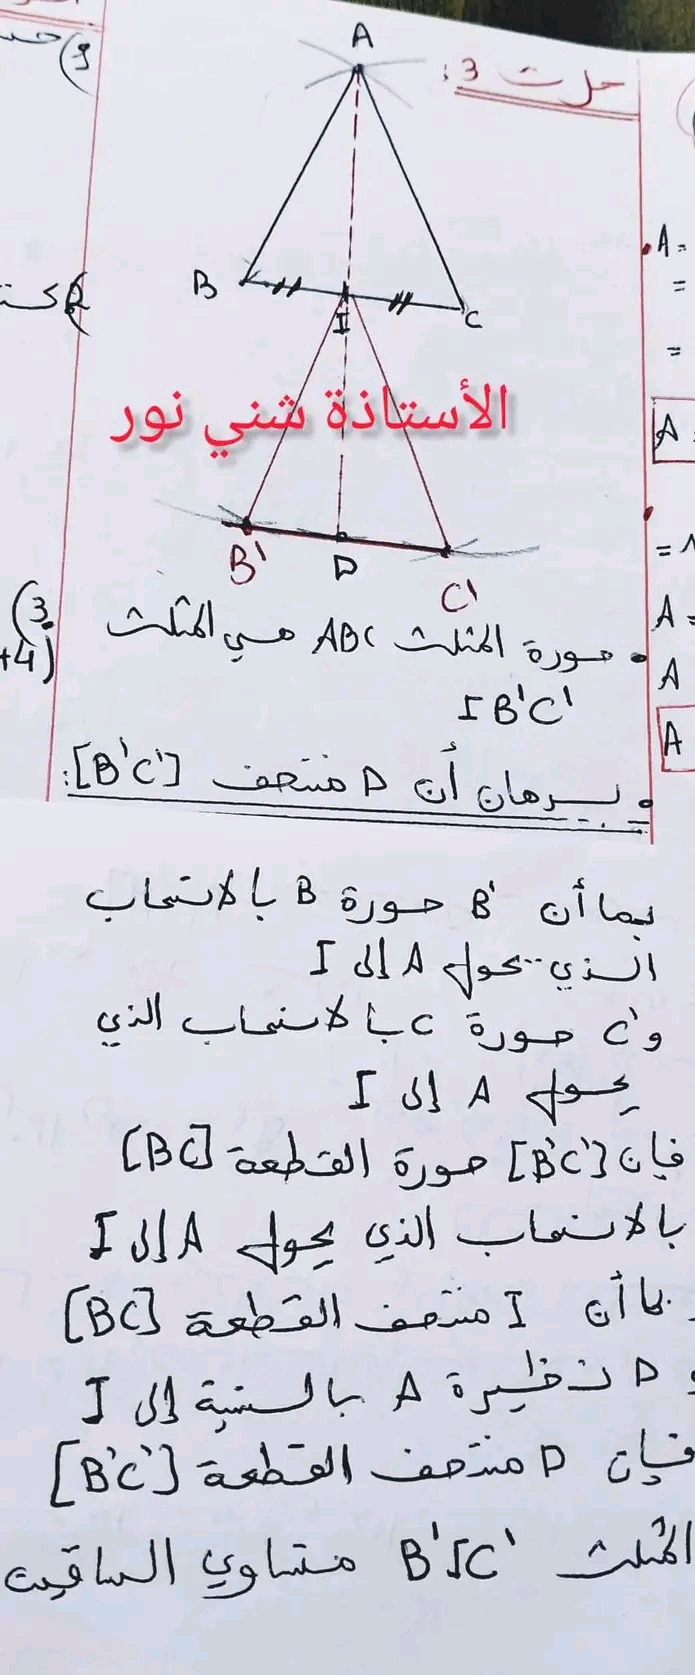 حل ت 3:
A
B
I
C
الأستاذة شني نور
B'
D
C'
• صورة المثلث ABC هي المثلث
IB'C'
• برهان أن D منتصف [B'C']:
بما أن B' صورة B بالانسحاب
الذي يحول A إلى I
و C' صورة C بالانسحاب الذي
يحول A إلى I
فإن [B'C'] صورة القطعة [BC]
بالانسحاب الذي يحول A إلى I
بما أن I منتصف القطعة [BC]
و D نظيرة A بالنسبة إلى I
فإن D منتصف القطعة [B'C']
المثلث B'IC' متساوي الساقين
(3
+4)
A =
=
=
A
= 1
A =
A
A